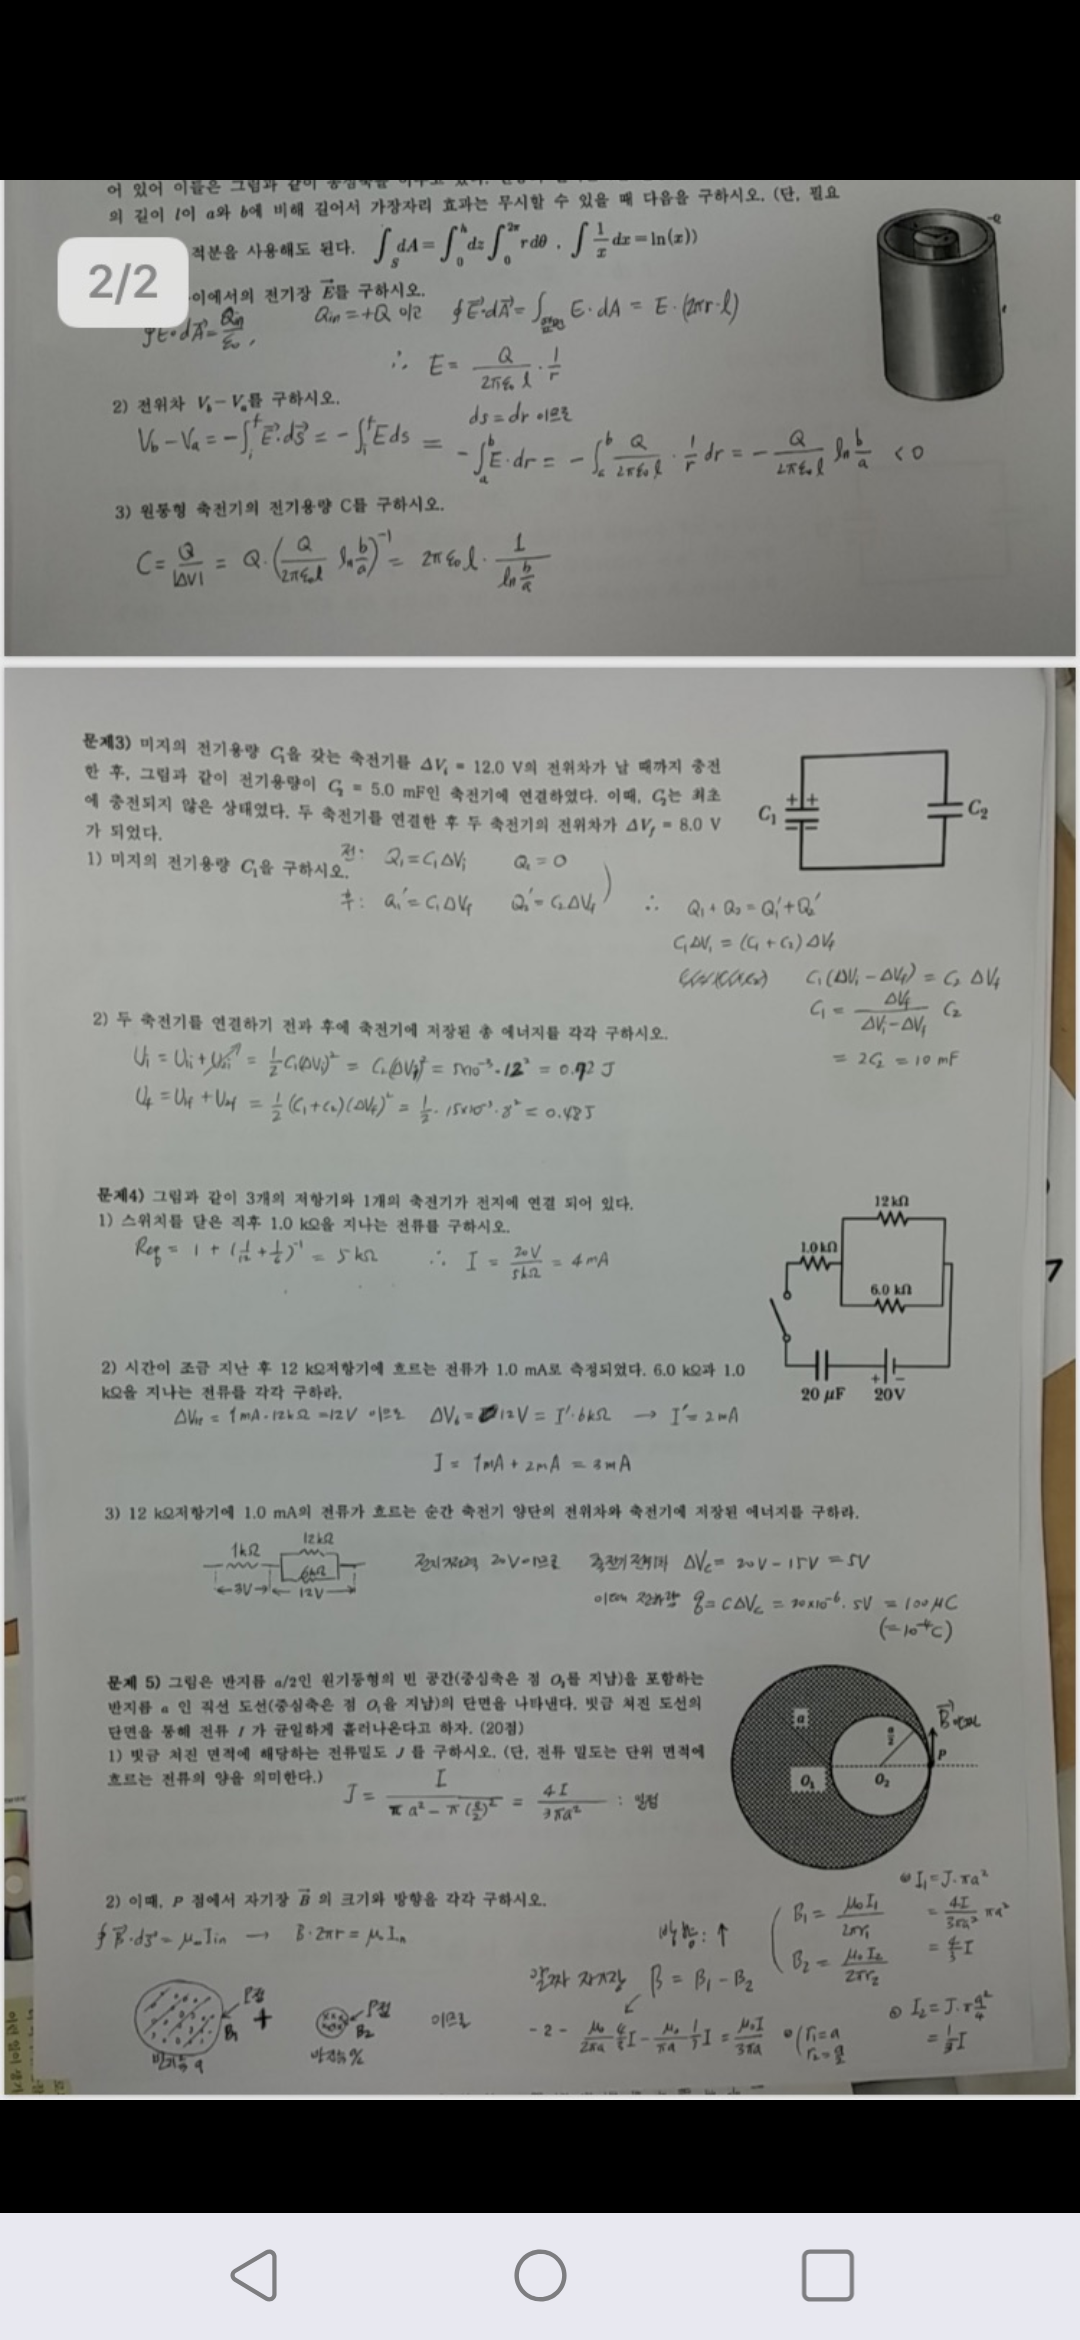 의 길이 l이 a와 b에 비해 길어서 가장자리 효과는 무시할 수 있을 때 다음을 구하시오. (단, 필요
적분을 사용해도 된다. ∫_S dA = ∫_0^h dz ∫_0^{2π} r dθ , ∫ 1/x dx = ln(x))
2/2
이에서의 전기장 E⃗를 구하시오.
∮E⃗·dA⃗ = Qin/ε₀, Qin = +Q 이고 ∮E⃗·dA⃗ = ∫ E·dA = E·(2πr·l)
∴ E = Q/(2πε₀l) · 1/r
2) 전위차 V_b - V_a를 구하시오.
ds = dr 이므로
Vb - Va = -∫_i^f E⃗·ds⃗ = -∫_i^f E ds = -∫_a^b E·dr = -∫_a^b Q/(2πε₀l) · 1/r dr = - Q/(2πε₀l) ln b/a < 0
3) 원통형 축전기의 전기용량 C를 구하시오.
C = Q/|ΔV| = Q·(Q/(2πε₀l) ln b/a)^-1 = 2πε₀l · 1/(ln b/a)
-Q
문제3) 미지의 전기용량 C₁을 갖는 축전기를 ΔV_i = 12.0 V의 전위차가 날 때까지 충전
한 후, 그림과 같이 전기용량이 C₂ = 5.0 mF인 축전기에 연결하였다. 이때, C₂는 최초
에 충전되지 않은 상태였다. 두 축전기를 연결한 후 두 축전기의 전위차가 ΔV_f = 8.0 V
가 되었다.
C₁ ++ C₂
1) 미지의 전기용량 C₁을 구하시오.
전: Q₁ = C₁ΔVi Q₂ = 0
후: Q₁' = C₁ΔVf Q₂' = C₂ΔVf
∴ Q₁ + Q₂ = Q₁' + Q₂'
C₁ΔVi = (C₁ + C₂)ΔVf
C₁(ΔVi - ΔVf) = C₂ ΔVf
C₁ = ΔVf/(ΔVi - ΔVf) C₂
= 2C₂ = 10 mF
2) 두 축전기를 연결하기 전과 후에 축전기에 저장된 총 에너지를 각각 구하시오.
Ui = U₁i + U₂i = 1/2 C₁(ΔVi)² = C₂(ΔVi)² = 5×10⁻³·12² = 0.72 J
Uf = U₁f + U₂f = 1/2 (C₁+C₂)(ΔVf)² = 1/2 · 15×10⁻³·8² = 0.48J
문제4) 그림과 같이 3개의 저항기와 1개의 축전기가 전지에 연결 되어 있다.
1) 스위치를 닫은 직후 1.0 kΩ을 지나는 전류를 구하시오.
Req = 1 + (1/12 + 1/6)^-1 = 5 kΩ ∴ I = 20V/5kΩ = 4 mA
12 kΩ
1.0 kΩ
6.0 kΩ
+ -
20 μF 20V
2) 시간이 조금 지난 후 12 kΩ저항기에 흐르는 전류가 1.0 mA로 측정되었다. 6.0 kΩ과 1.0
kΩ을 지나는 전류를 각각 구하라.
ΔV₁₂ = 1mA·12kΩ = 12V 이므로 ΔV₆ = 12V = I'·6kΩ → I' = 2mA
I = 1mA + 2mA = 3mA
3) 12 kΩ저항기에 1.0 mA의 전류가 흐르는 순간 축전기 양단의 전위차와 축전기에 저장된 에너지를 구하라.
1kΩ 12kΩ 6kΩ
3V 12V
20V이므로 축전기 전위차 ΔVc = 20V - 15V = 5V
이때 전하량 q = CΔVc = 20×10⁻⁶·5V = 100 μC
(=10⁻⁴C)
문제 5) 그림은 반지름 a/2인 원기둥형의 빈 공간(중심축은 점 O₂를 지남)을 포함하는
반지름 a 인 직선 도선(중심축은 점 O₁을 지남)의 단면을 나타낸다. 빗금 쳐진 도선의
단면을 통해 전류 I 가 균일하게 흘러나온다고 하자. (20점)
1) 빗금 쳐진 면적에 해당하는 전류밀도 J 를 구하시오. (단, 전류 밀도는 단위 면적에
흐르는 전류의 양을 의미한다.)
J = I/(πa² - π(a/2)²) = 4I/3πa² : 일정
a a/2 B⃗ P
O₁ O₂
2) 이때, P 점에서 자기장 B⃗ 의 크기와 방향을 각각 구하시오.
∮B⃗·ds⃗ = μ₀Iin → B·2πr = μ₀Iin
방향: ↑
B₁ = μ₀I₁/2πr₁
B₂ = μ₀I₂/2πr₂
I₁ = J·πa²
= 4I/3πa² πa²
= 4/3 I
알짜 자기장 B = B₁ - B₂
P점 B₁ + P점 B₂ 이므로
반지름 a 반지름 a/2
- 2 -
μ₀/2πa 4/3 I - μ₀/πa 1/3 I = μ₀I/3πa
r₁ = a
r₂ = a/2
I₂ = J·π a²/4
= 1/3 I